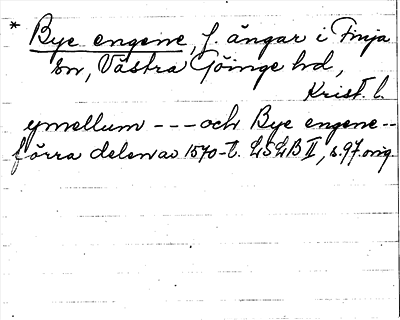 * Bye engene, f. ängar i Finja
sn, Västra Göinge hd,
Krist. l.
ymellum --- och Bye engene --
förra delen av 1570-t. LSLB II, s. 97. orig.